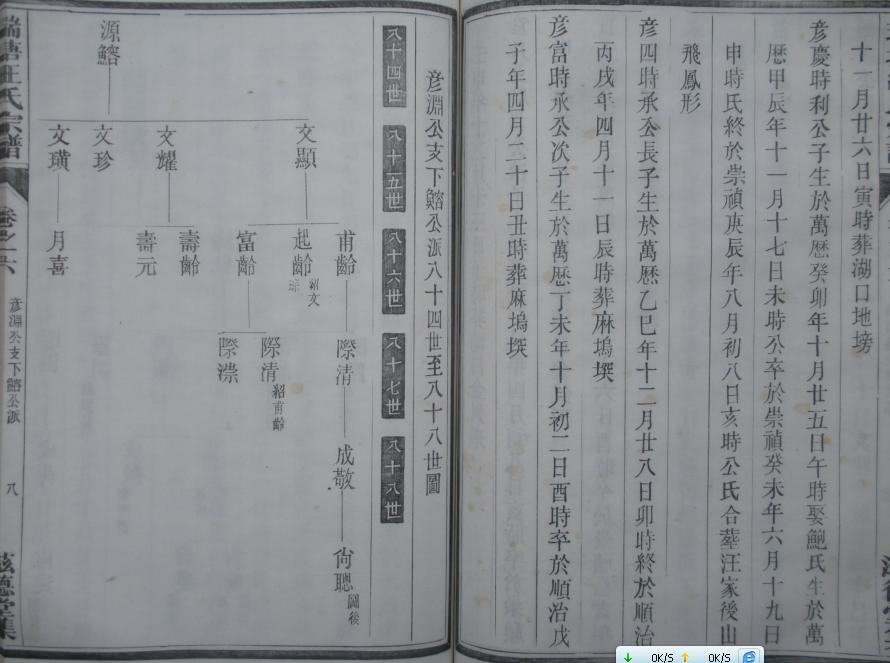 十一月廿六日寅時葬湖口地塝
彦慶時利公子生於萬歷癸卯年十月廿五日午時娶鮑氏生於萬
歷甲辰年十一月十七日未時公卒於崇禎癸未年六月十九日
申時氏終於崇禎庚辰年八月初八日亥時公氏合葬汪家後山
飛鳳形
彦四時承公長子生於萬歷乙巳年十二月廿八日卯時終於順治
丙戌年四月十一日辰時葬麻塢㙇
彦富時承公次子生於萬歷丁未年十月初二日酉時卒於順治戊
子年四月二十日丑時葬麻塢㙇
彦淵公支下鰫公派八十四世至八十八世圖
八十四世
八十五世
八十六世
八十七世
八十八世
源鰫
文顯
文耀
文珍
文璜
甫齡
起齡
富齡
壽齡
壽元
月喜
際清
際清 紹甫齡
際漴
成敬
尙聰 圖後
瑞塘汪氏宗譜
卷之六
彦淵公支下鰫公派
八